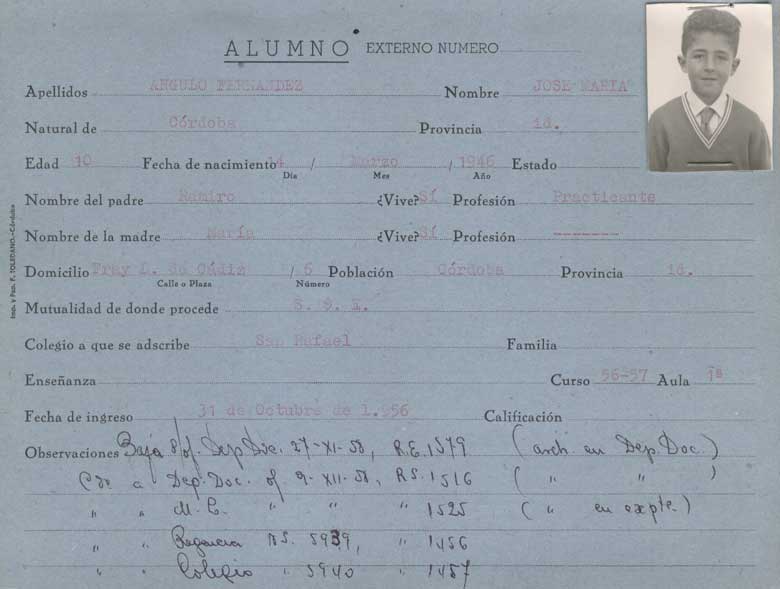 ALUMNO EXTERNO NUMERO
Apellidos ANGULO FERNANDEZ Nombre JOSE MARIA
Natural de Córdoba Provincia id.
Edad 10 Fecha de nacimiento 14 / Marzo / 1946 Estado
Dia Mes Año
Nombre del padre Ramiro ¿Vive? Sí Profesión Practicante
Nombre de la madre María ¿Vive? Sí Profesión -------
Domicilio Fray L. de Cádiz / 6 Población Córdoba Provincia id.
Calle o Plaza Número
Mutualidad de donde procede
Colegio a que se adscribe San Rafael Familia
Enseñanza Curso 56-57 Aula 1ª
Fecha de ingreso 31 de Octubre de 1.956 Calificación
Observaciones Baja s/of. Dep. Doc. 27-XI-58, R.E. 1579 (arch. en Dep. Doc.)
a Dep. Doc. of 9-XII-58, RS. 1516 ( " " )
" " M.C. " " " 1525 ( " en expte.)
" " Regencia RS. 5939, " 1456
" " Colegio " 5940 " 1457
Imp. y Pap. F. TOLEDANO.-Córdoba